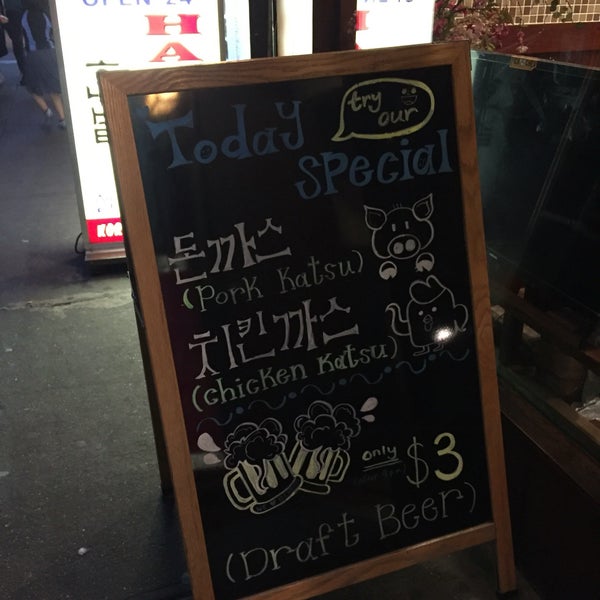 OPEN 24
HA
KOR
try
our
Today
special
돈까스
(Pork Katsu)
치킨까스
(chicken Katsu)
only
$3
(Draft Beer)